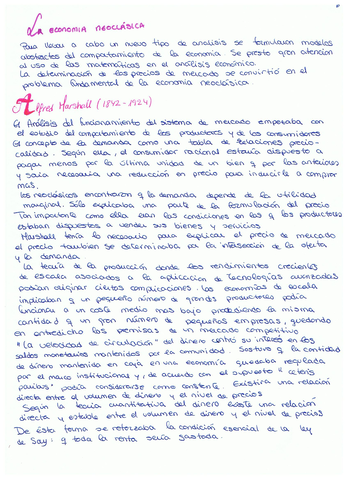 La ECONOMIA NEOCLÁSICA
Para llevar a cabo un nuevo tipo de analisis se formularon modelos
abstractos del comportamiento de la economia. Se presto gran atencion
al uso de las matematicas en el análisis económico.
La determinación de los precios de mercado se convirtió en el
problema fundamental de la economia neoclásica
Alfred Marshall (1842-1924)
El Análisis del funcionamiento del sistema de mercado empezaba con
el estudio del comportamiento de los productores y de los consumidores
El concepto de la demanda como una tabla de relaciones precio-
calidad. Según ella, el consumidor racional estaria dispuesto a
pagar menos por la última unidad de un bien q por las anteriores
y seria necesaria una reducción en precio para inducirle a comprar
mas.
los neoclásicos encontraron q la demanda depende de la utilidad
marginal. Sólo explicaba una parte de la formulación del precio
Tan importante como ella eran las condiciones en las q los productores
estaban dispuestos a vender sus bienes y servicios.
Marshall tenia lo necesario para explicar el precio de mercado
el precio tambien se determinaba por la intersección de la oferta
y la demanda
La teoria de la producción donde los rendimientos crecientes
de escala asociados a la aplicación de Tecnologías avanzadas
podian originar ciertas complicaciones. las economias de escala
implicaban q un pequeño número de grandes productores podia
funcionar a un coste medio mas bajo produciendo la misma
cantidad q un gran número de pequeñas empresas, quedando
en entredicho las premisas de un mercado competitivo
"La velocidad de circulación" del dinero centró su interés en los
saldos monetarios mantenidos por la comunidad. Sostuvo q la cantidad
de dinero mantenida en caja en una economia quedaba regulada
por el marco institucional y, de acuerdo con el supuesto "ceteris
paribus" podia considerarse como constante. Existiria una relación
directa entre el volumen de dinero y el nivel de precios
Según la teoria cuantitativa del dinero existe una relación
directa y estable entre el volumen de dinero y el nivel de precios
De ésta forma se reforzaba la condición esencial de la ley
de Say: q toda la renta seria gastada.